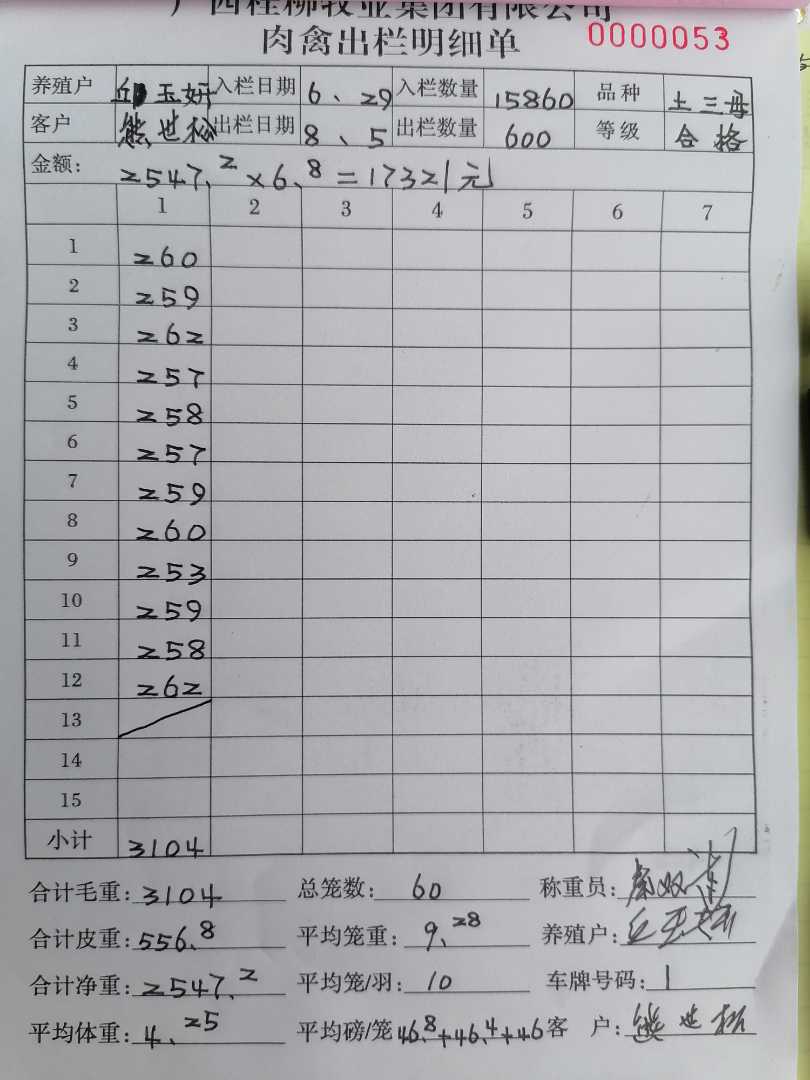 广西桂柳牧业集团有限公司
肉禽出栏明细单 0000053
养殖户 丘玉妍 入栏日期 6、29 入栏数量 15860 品种 土三母
客户 熊世松 出栏日期 8、5 出栏数量 600 等级 合格
金额: 2547.2×6.8=17321元
1 2 3 4 5 6 7
1 260
2 259
3 262
4 257
5 258
6 257
7 259
8 260
9 253
10 259
11 258
12 262
13
14
15
小计 3104
合计毛重: 3104 总笼数: 60 称重员:
合计皮重: 556.8 平均笼重: 9.28 养殖户: 丘玉妍
合计净重: 2547.2 平均笼/羽: 10 车牌号码: 1
平均体重: 4.25 平均磅/笼 46.8+46.4+46 客 户: 熊世松